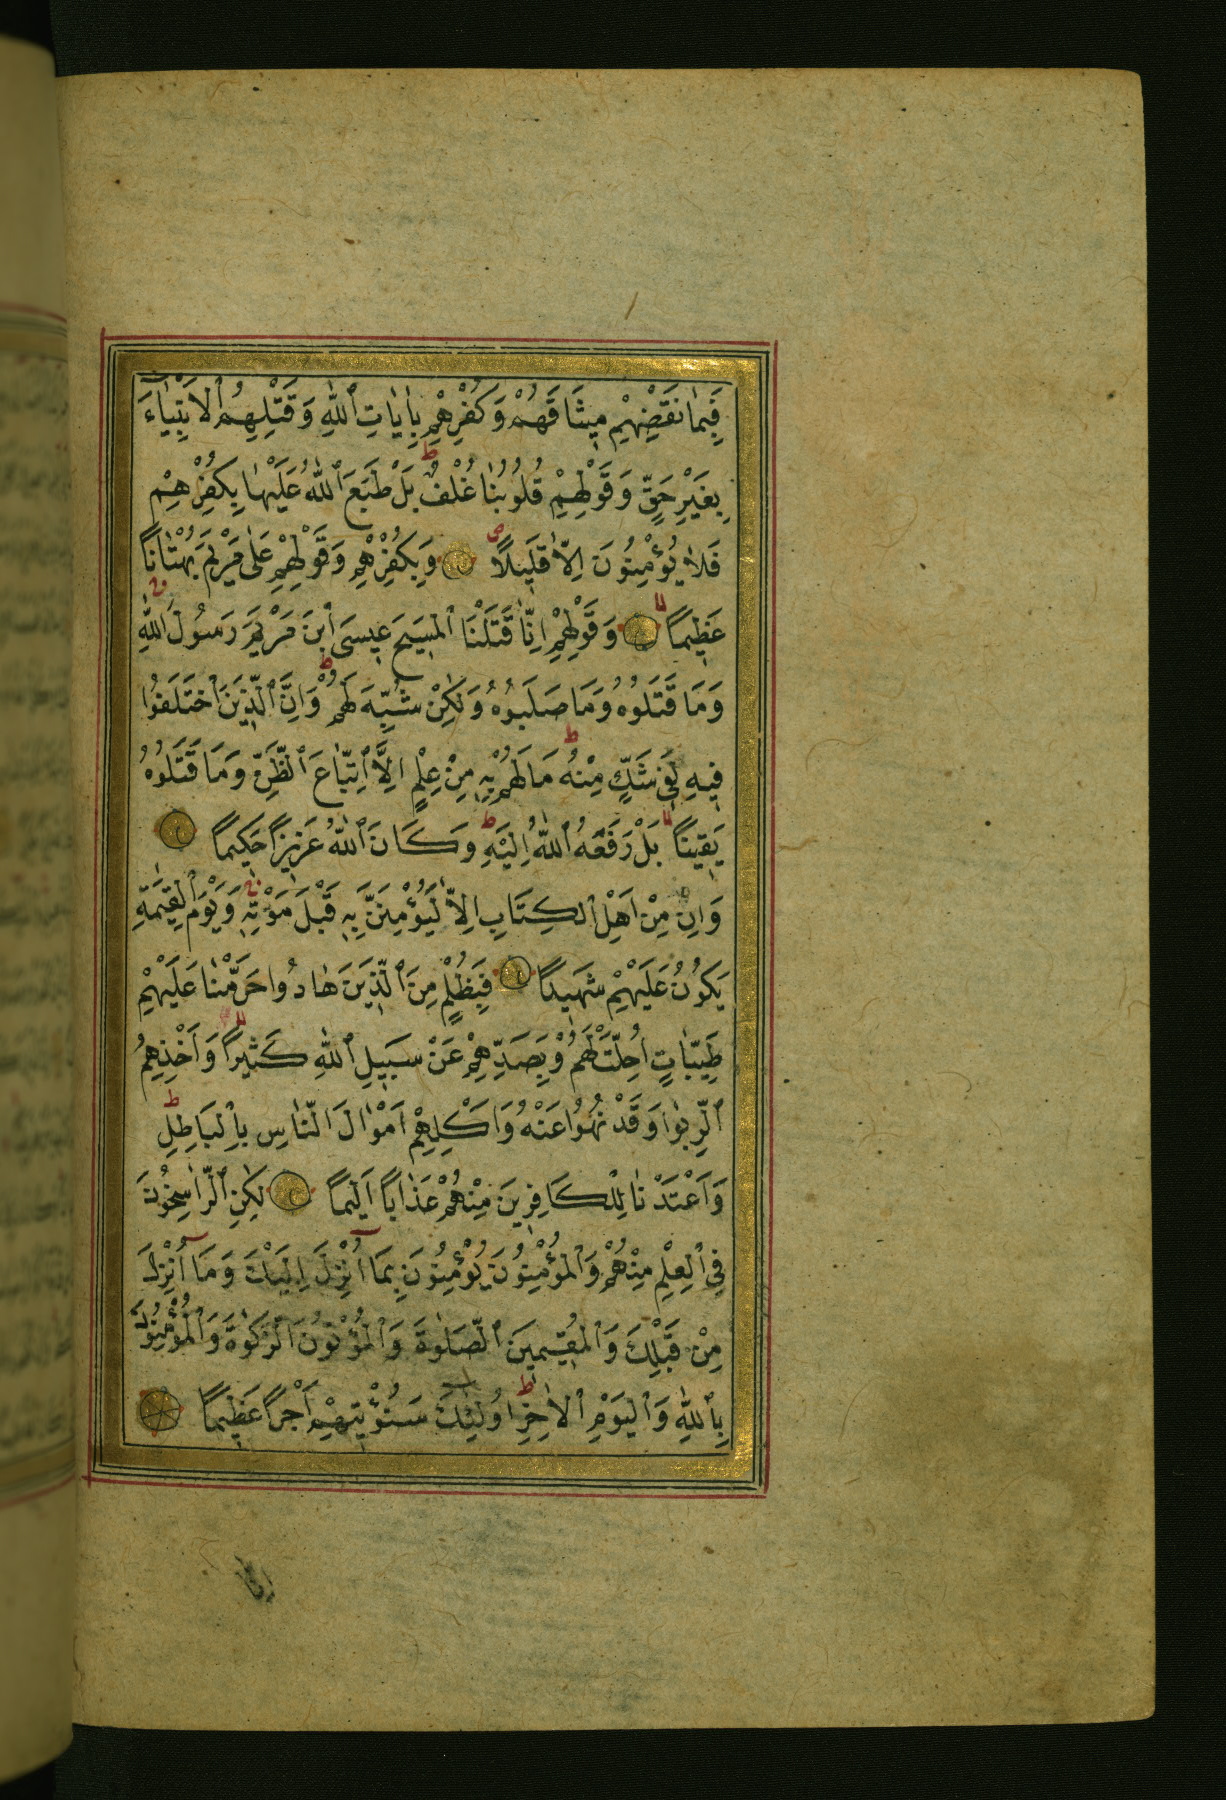 فَبِمَا نَقْضِهِمْ مِيثَاقَهُمْ وَكُفْرِهِمْ بِاٰيَاتِ ٱللّٰهِ وَقَتْلِهِمُ ٱلْاَنْبِيَآءَ
بِغَيْرِ حَقٍّ وَقَوْلِهِمْ قُلُوبُنَا غُلْفٌ ط بَلْ طَبَعَ ٱللّٰهُ عَلَيْهَا بِكُفْرِهِمْ
فَلَا يُؤْمِنُونَ اِلَّا قَلِيلًا ص وَبِكُفْرِهِمْ وَقَوْلِهِمْ عَلٰى مَرْيَمَ بُهْتَانًا
عَظِيمًا لا وَقَوْلِهِمْ اِنَّا قَتَلْنَا ٱلْمَسِيحَ عِيسَى ٱبْنَ مَرْيَمَ رَسُولَ ٱللّٰهِ ج
وَمَا قَتَلُوهُ وَمَا صَلَبُوهُ وَلٰكِنْ شُبِّهَ لَهُمْ ط وَاِنَّ ٱلَّذِينَ ٱخْتَلَفُوا
فِيهِ لَفِى شَكٍّ مِنْهُ ط مَا لَهُمْ بِهِ مِنْ عِلْمٍ اِلَّا ٱتِّبَاعَ ٱلظَّنِّ وَمَا قَتَلُوهُ
يَقِينًا لا بَلْ رَفَعَهُ ٱللّٰهُ اِلَيْهِ ط وَكَانَ ٱللّٰهُ عَزِيزًا حَكِيمًا
وَاِنْ مِنْ اَهْلِ ٱلْكِتَابِ اِلَّا لَيُؤْمِنَنَّ بِهِ قَبْلَ مَوْتِهِ ج وَيَوْمَ ٱلْقِيٰمَةِ
يَكُونُ عَلَيْهِمْ شَهِيدًا فَبِظُلْمٍ مِنَ ٱلَّذِينَ هَادُوا حَرَّمْنَا عَلَيْهِمْ
طَيِّبَاتٍ اُحِلَّتْ لَهُمْ وَبِصَدِّهِمْ عَنْ سَبِيلِ ٱللّٰهِ كَثِيرًا لا وَاَخْذِهِمُ
ٱلرِّبٰوا وَقَدْ نُهُوا عَنْهُ وَاَكْلِهِمْ اَمْوَالَ ٱلنَّاسِ بِٱلْبَاطِلِ ط
وَاَعْتَدْنَا لِلْكَافِرِينَ مِنْهُمْ عَذَابًا اَلِيمًا لٰكِنِ ٱلرَّاسِخُونَ
فِى ٱلْعِلْمِ مِنْهُمْ وَٱلْمُؤْمِنُونَ يُؤْمِنُونَ بِمَا اُنْزِلَ اِلَيْكَ وَمَا اُنْزِلَ
مِنْ قَبْلِكَ وَٱلْمُقِيمِينَ ٱلصَّلٰوةَ وَٱلْمُؤْتُونَ ٱلزَّكٰوةَ وَٱلْمُؤْمِنُونَ
بِٱللّٰهِ وَٱلْيَوْمِ ٱلْاٰخِرِ ط اُولٰئِكَ سَنُؤْتِيهِمْ اَجْرًا عَظِيمًا